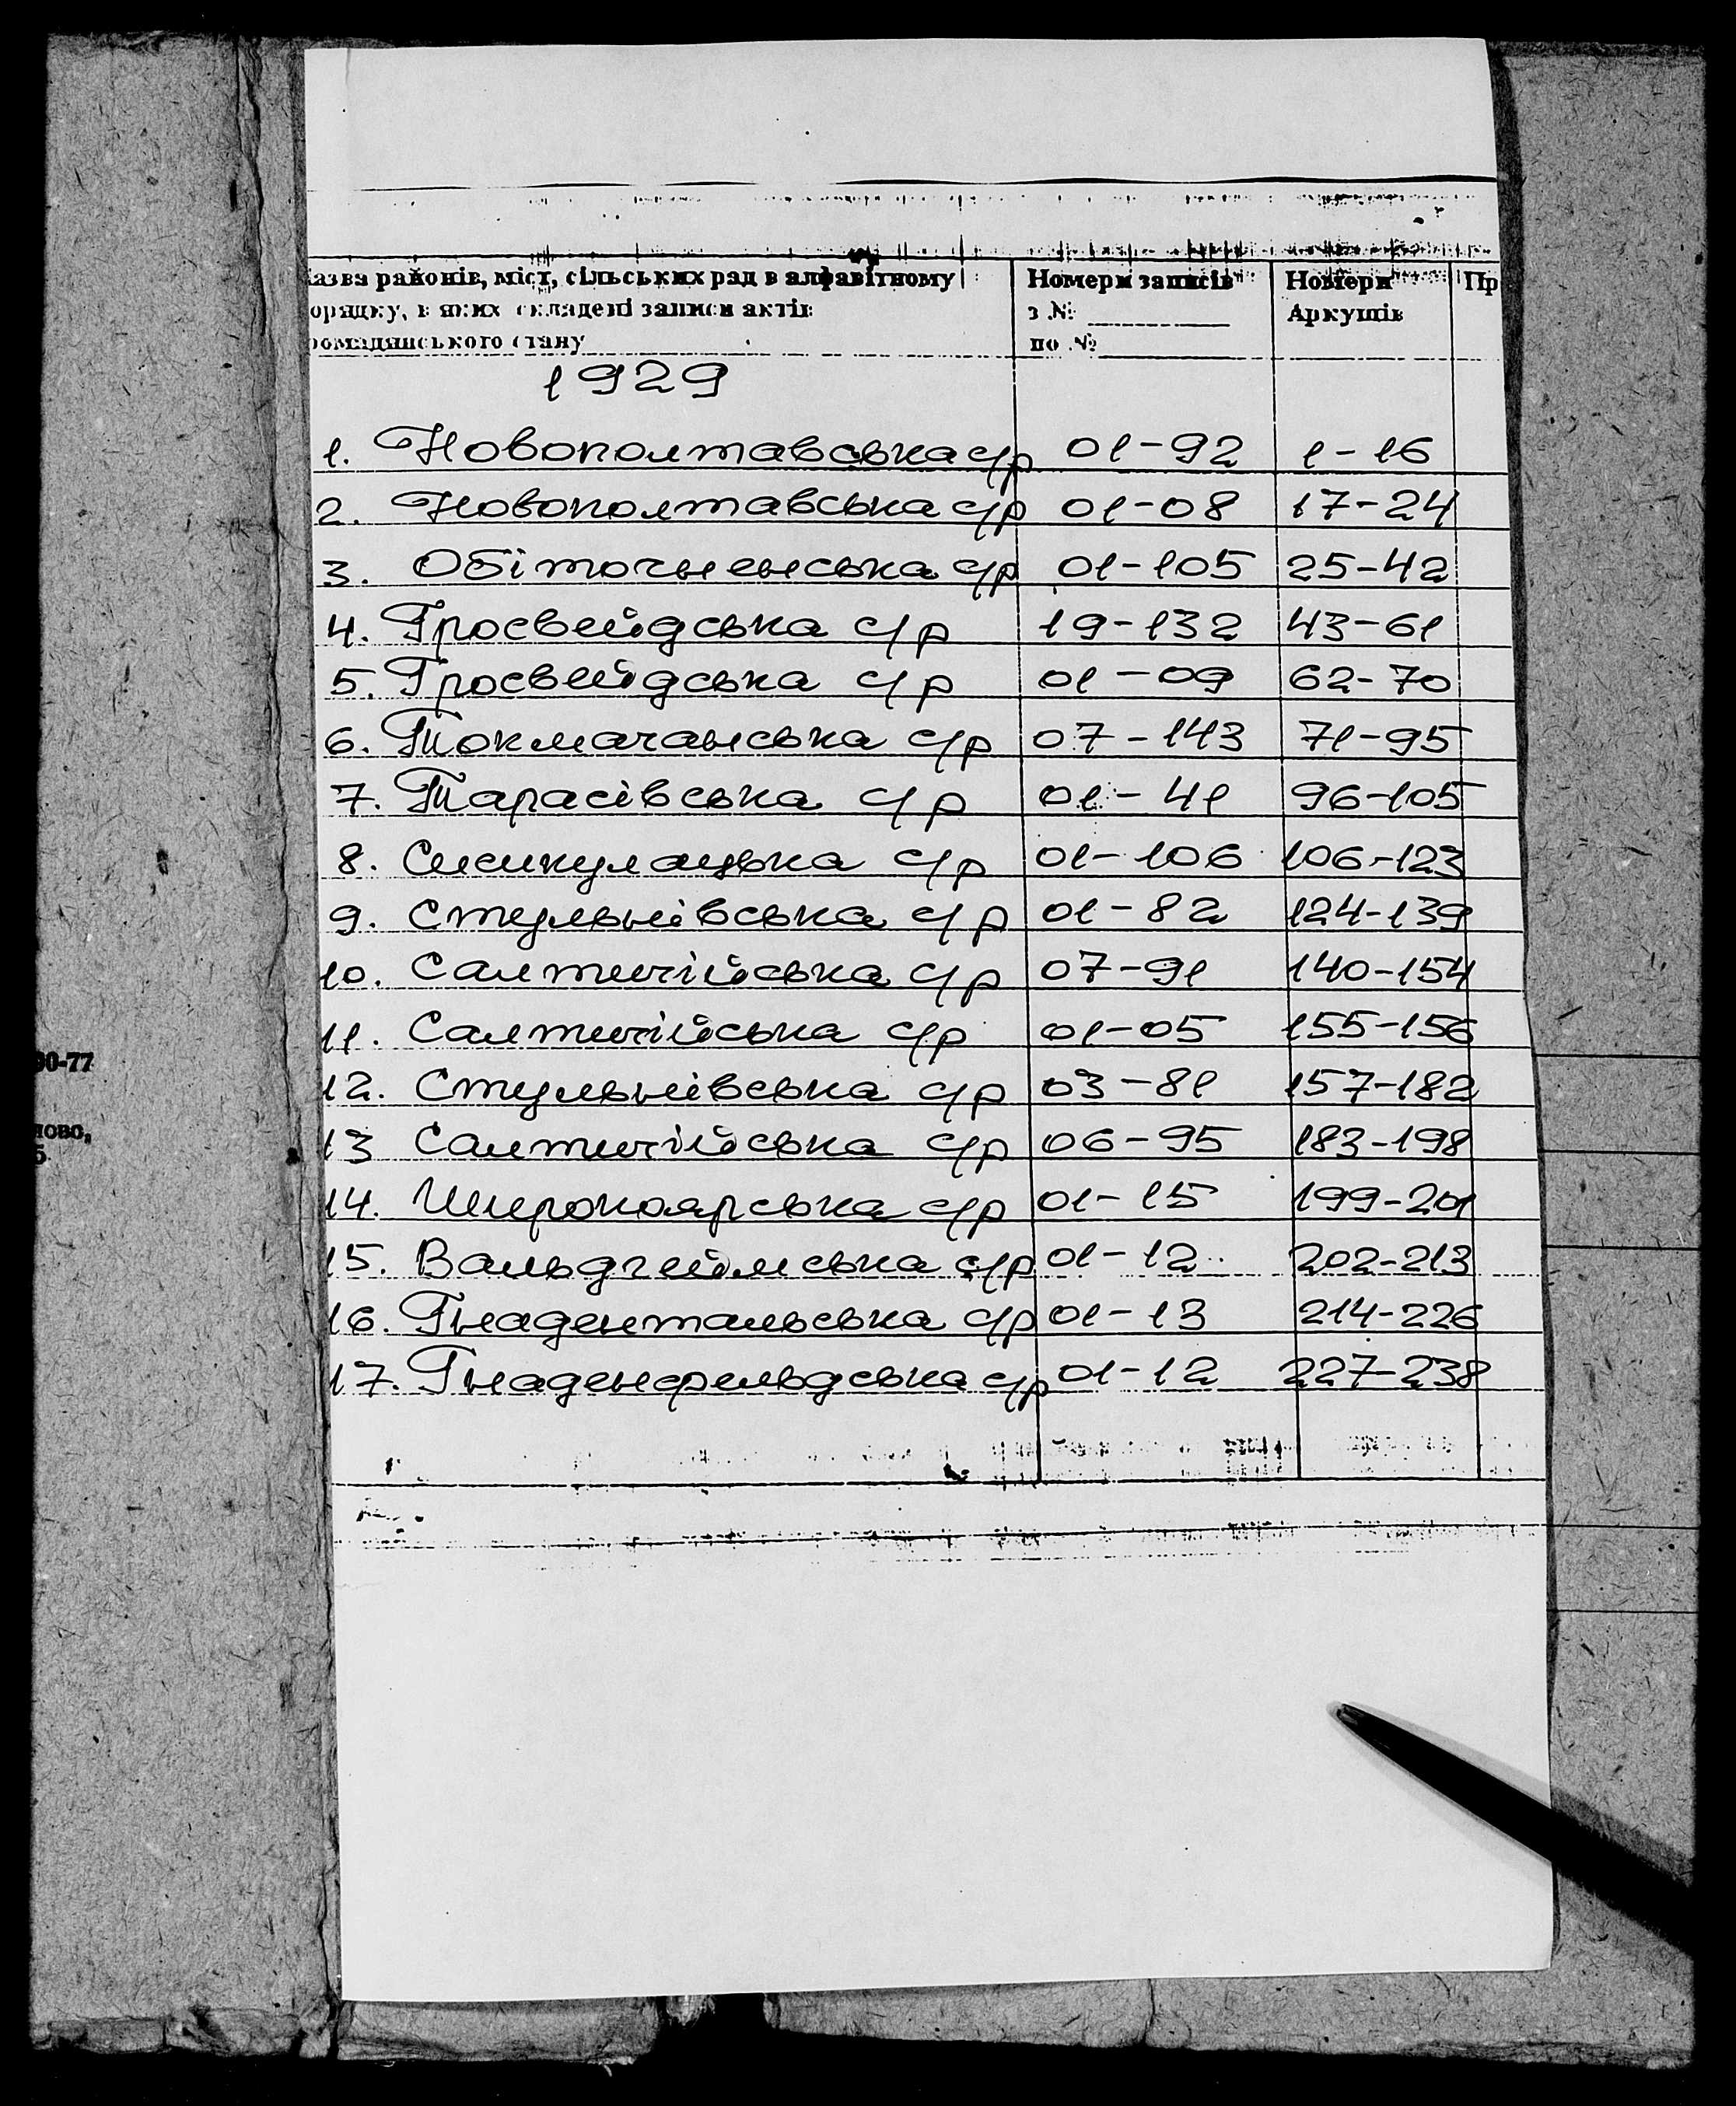 азва районів, міст, сільських рад в алфавітному Номери записів Номери Пр
орядку, в яких складені записи актів з № Аркушів
ромадянського стану по №
1929
1. Новополтавська с/р 01-92 1-16
2. Новополтавська с/р 01-08 17-24
3. Обіточненська с/р 01-105 25-42
4. Гросвейдська с/р 19-132 43-61
5. Гросвейдська с/р 01-09 62-70
6. Токмачанська с/р 07-143 71-95
7. Тарасівська с/р 01-41 96-105
8. с/р 01-106 106-123
9. Стульнівська с/р 01-82 124-139
10. Салтичійська с/р 07-91 140-154
11. Салтичійська с/р 01-05 155-156
12. Стульнівська с/р 03-81 157-182
13 Салтичійська с/р 06-95 183-198
14. Широкоярська с/р 01-15 199-201
15. Вальдгеймська с/р 01-12 202-213
16. Гнадентальська с/р 01-13 214-226
17. Гнаденфельдська с/р 01-12 227-238
90-77
лово,
5